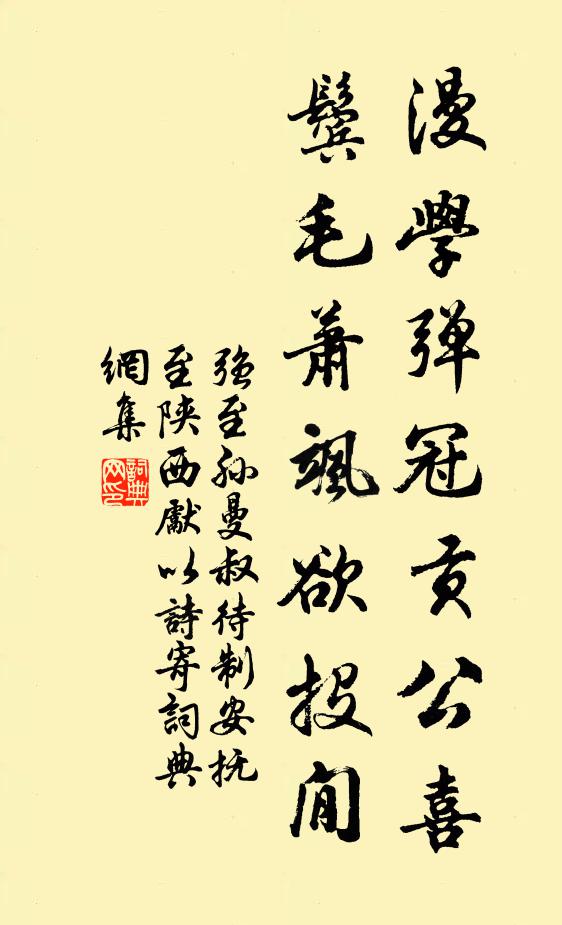 漫學彈冠貢公喜
鬓毛蕭颯欲投閒
強至孙曼叔待制安抚
至陕西獻以詩寄詞典
網集
詞典網印